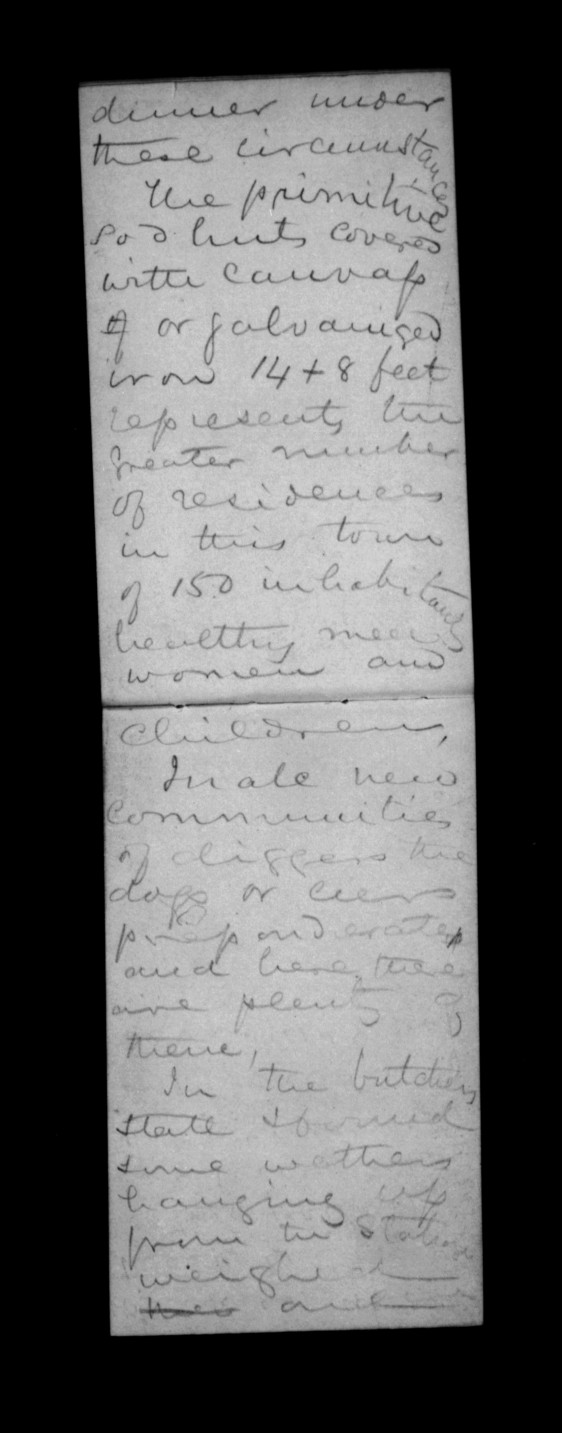 dinner under
these circumstances
The primitive
sod huts covered
with canvass
or galvanized
iron 14 + 8 feet
represents the
greater number
of residences
in this town
of 150 inhabitants
healthy men
women and
children,
In all new
communities
of diggers the
dogs or
preponderates
and here there
are plenty of
them,
In the butchers
I found
some wethers
hanging up
from the Station
weighed
and